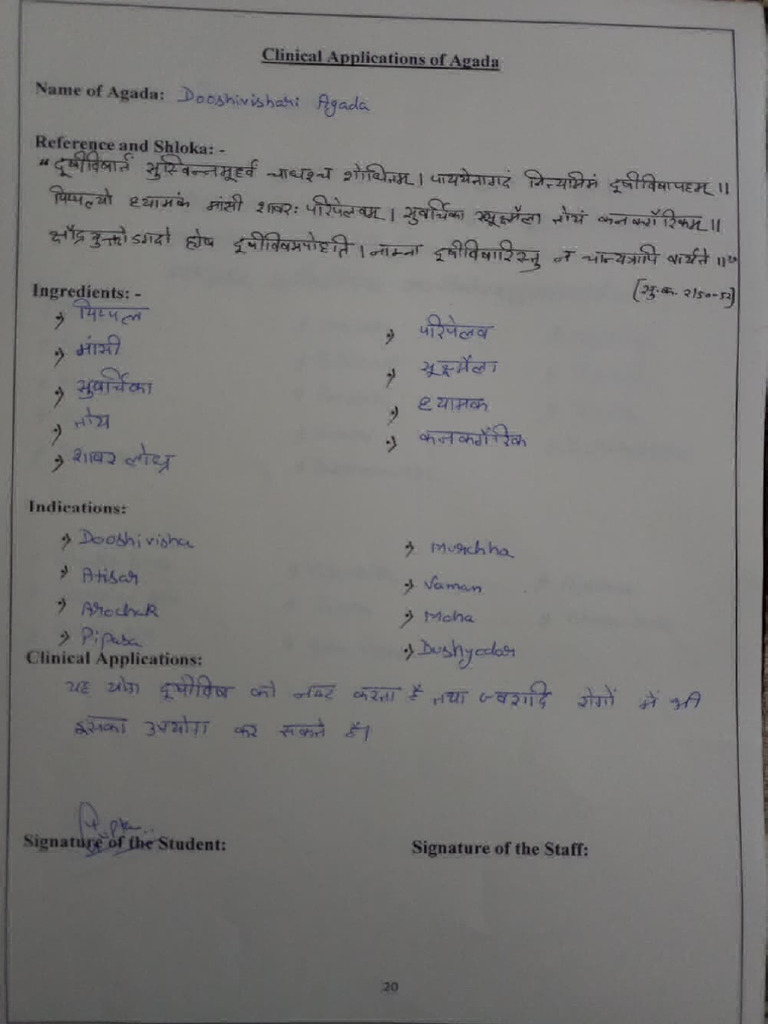 Clinical Applications of Agada
Name of Agada: Dooshivishari Agada
Reference and Shloka: -
"दूषीविषार्तं सुस्विन्नमूर्ध्वं चाधश्च शोधितम् । पाययेतागदं नित्यमिमं दूषीविषापहम् ॥
पिप्पल्यो ध्यामकं मांसी शावरः परिपेलवम् । सुवर्चिका ससूक्ष्मैला तोयं कनकगैरिकम् ॥
क्षौद्रयुक्तोऽगदो ह्येष दूषीविषमपोहति । नाम्ना दूषीविषारिस्तु न चान्यत्रापि वार्यते ॥"
[सु. क. 2/50-52]
Ingredients: -
पिप्पल
मांसी
सुवर्चिका
तोय
शावर लोध्र
परिपेलव
सूक्ष्मैला
ध्यामक
कनकगैरिक
Indications:
Dooshivisha
Atisar
Arochak
Pipasa
Murchha
Vaman
Moha
Dushyodar
Clinical Applications:
यह योग दूषीविष को नष्ट करता है तथा ज्वरादि रोगों में भी
इसका उपयोग कर सकते है।
Signature of the Student:
Signature of the Staff:
20